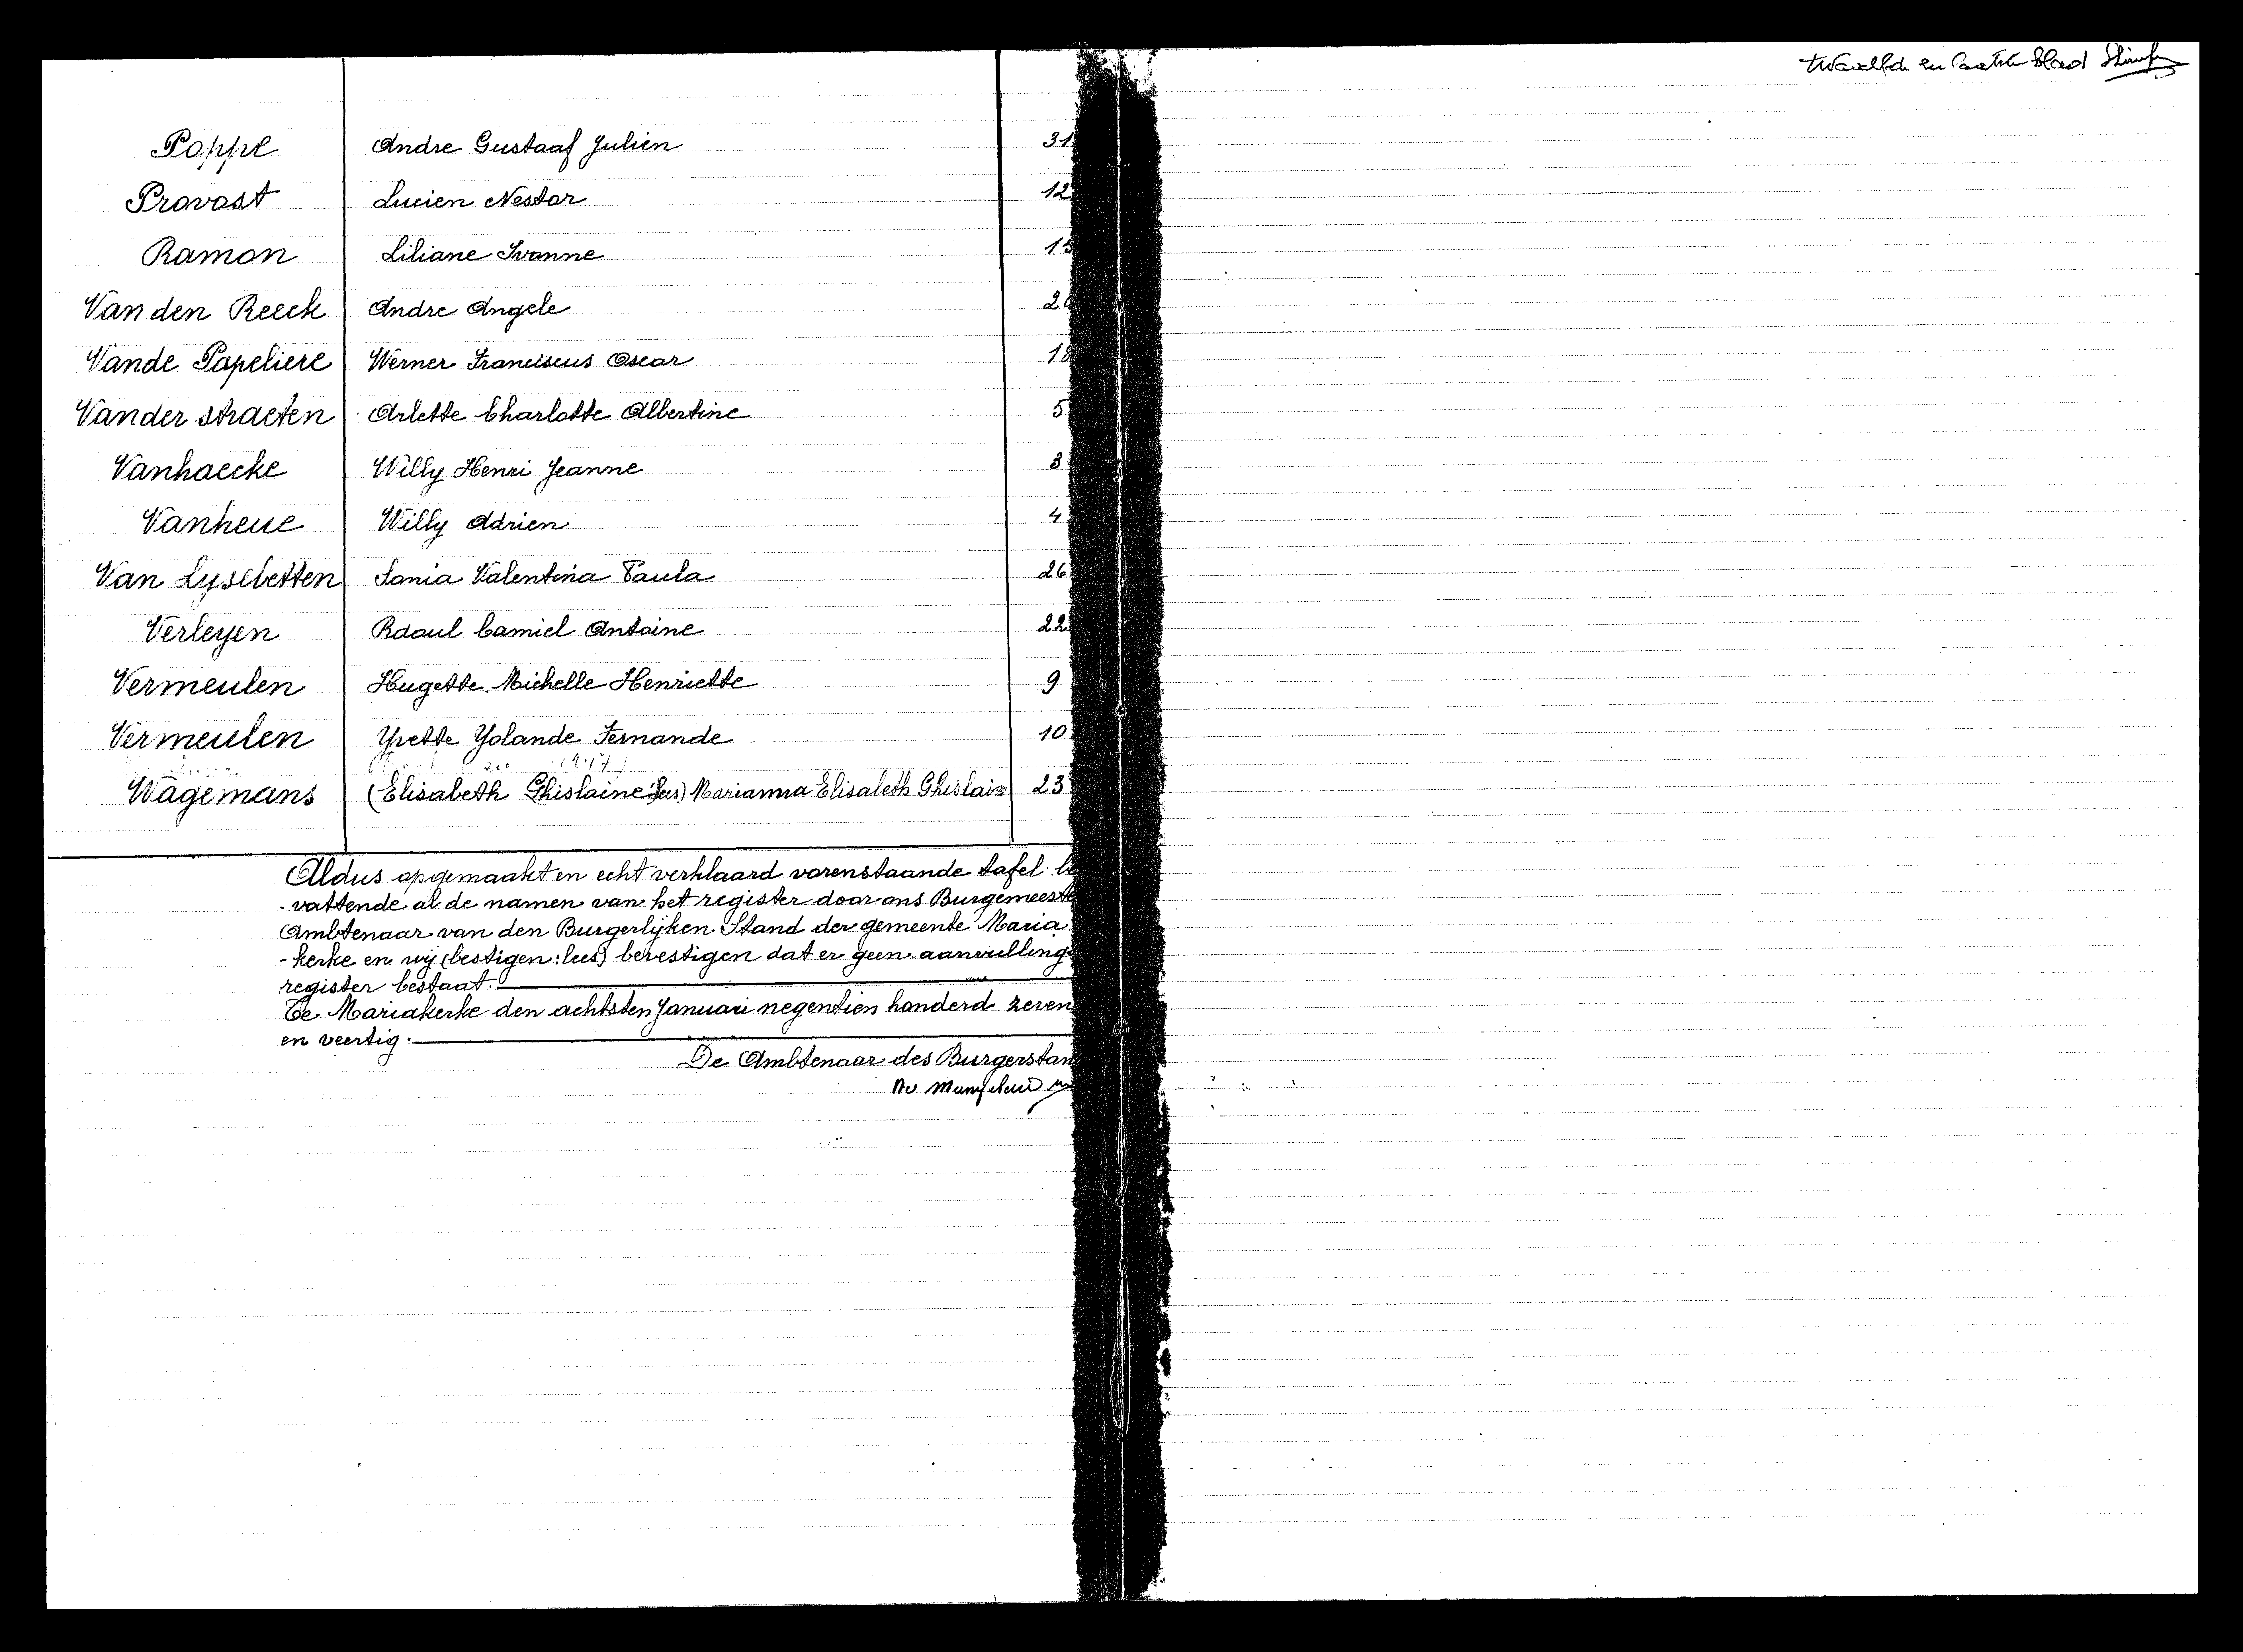 Poppe Andre Gustaaf Julien 31
Provost Lucien Nestor 12
Ramon Liliane Ivonne 15
Van den Reeck Andre Angele 2
Vande Papeliere Werner Franciscus Oscar 18
Vander straeten Arlette Charlotte Albertine 5
Vanhaecke Willy Henri Jeanne 3
Vanheue Willy Adrien 4
Van Lysebetten Sonia Valentina Paula 26
Verleyen Raoul Camiel Antoine 22
Vermeulen Hugette Michelle Henriette 9
Vermeulen Yvette Yolande Fernande 10
Wagemans (Elisabeth Ghislaine: lees) Marianna Elisabeth Ghislaine 23
Aldus opgemaakt en echt verklaard vorenstaande tafel be
-vattende al de namen van het register door ons Burgemeeste
Ambtenaar van den Burgerlijken Stand der gemeente Maria
-kerke en wij (bestigen: lees) bevestigen dat er geen aanvulling
register bestaat.
Te Mariakerke den achtsten Januari negentien honderd zeven
en veertig.
De Ambtenaar des Burgerstan
en blad